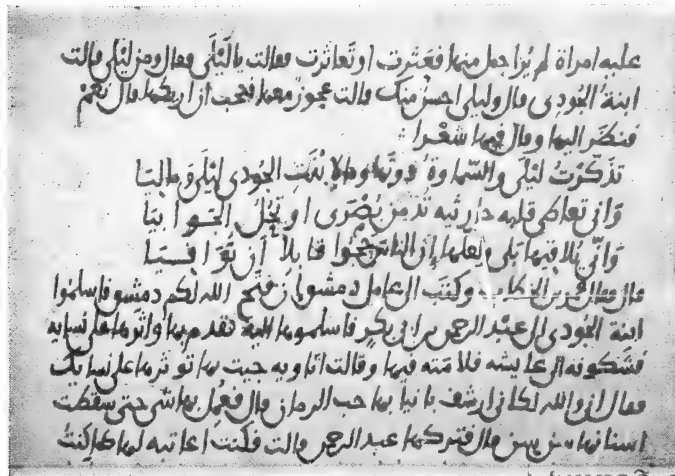 عليه امراة لم يرا جمل منها فعثرت او تعاثرت فقالت يا لَيْلَى فقال ومن ليلى قالت
ابنة الجُودى قال وليلى احسن منك قالت عجوز معها فتحب ان اريكها قال نعم
فنظر اليها وقال فيها شعرا
تذكّرْتُ ليْلَى والسّماوة دونها وما لابنةِ الجودى ليلى وماليَا
وانى تعاطى قلبه حارثيه تدمن بُصْرَى او تحُلّ الجوابيَا
وانّى يلاقيها بلى ولعلها إن الناس حجوا قابلاً ان توافيَا
قال فقال عمر بن الخطاب وكتب الى عامل دمشق ان فتح الله لكم دمشق فاسلموا
ابنة الجودى الى عبْد الرحمن بن ابى بكر فاسلموها اليه فقدم بها واثرها على نسايه
فشكونه الى عايشه فلامته فيها وقالت انا وبه جيت بها توثرها على نسايك
فقال انى والله لكانى ارشف بانيابها حب الرمان قال فعُمِل بها شى حتى سقطت
اسنانها من قال فتركها عبد الرحمن قالت فكنت اعاتبه لها كما كنت